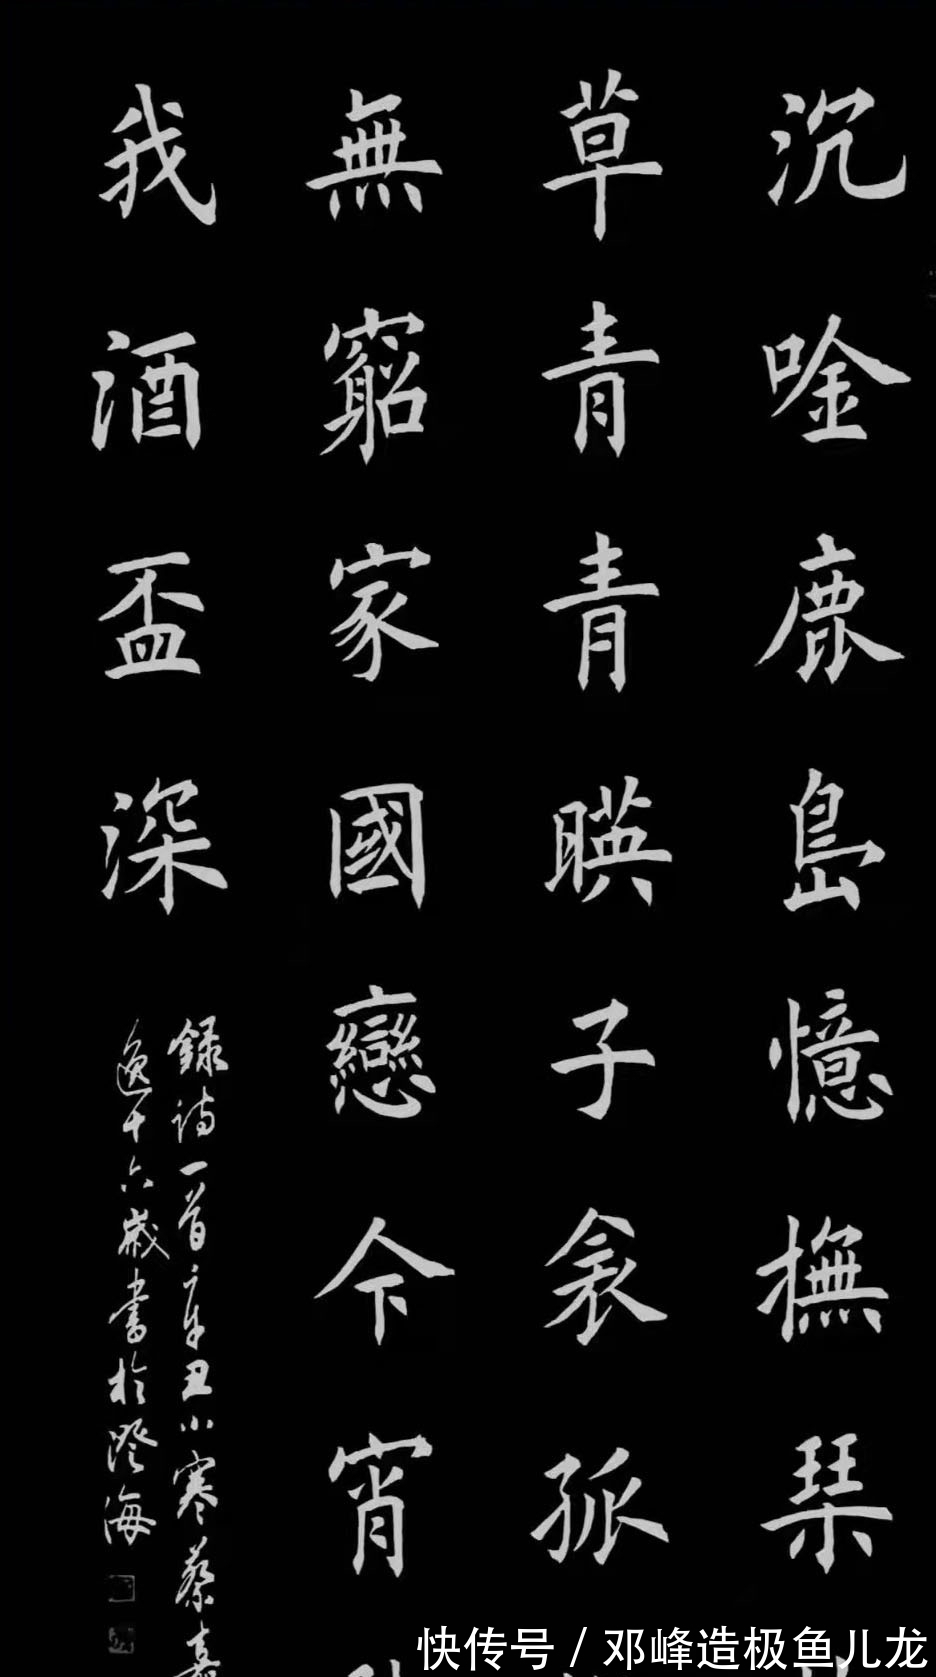 沉唫鹿島憶撫琹
草青青暎子衾孤
無窮家國戀今宵
我酒盃深
録诗一首辛丑小寒蔡嘉
逸十六歲書於澄海
快传号 / 邓峰造极鱼儿龙